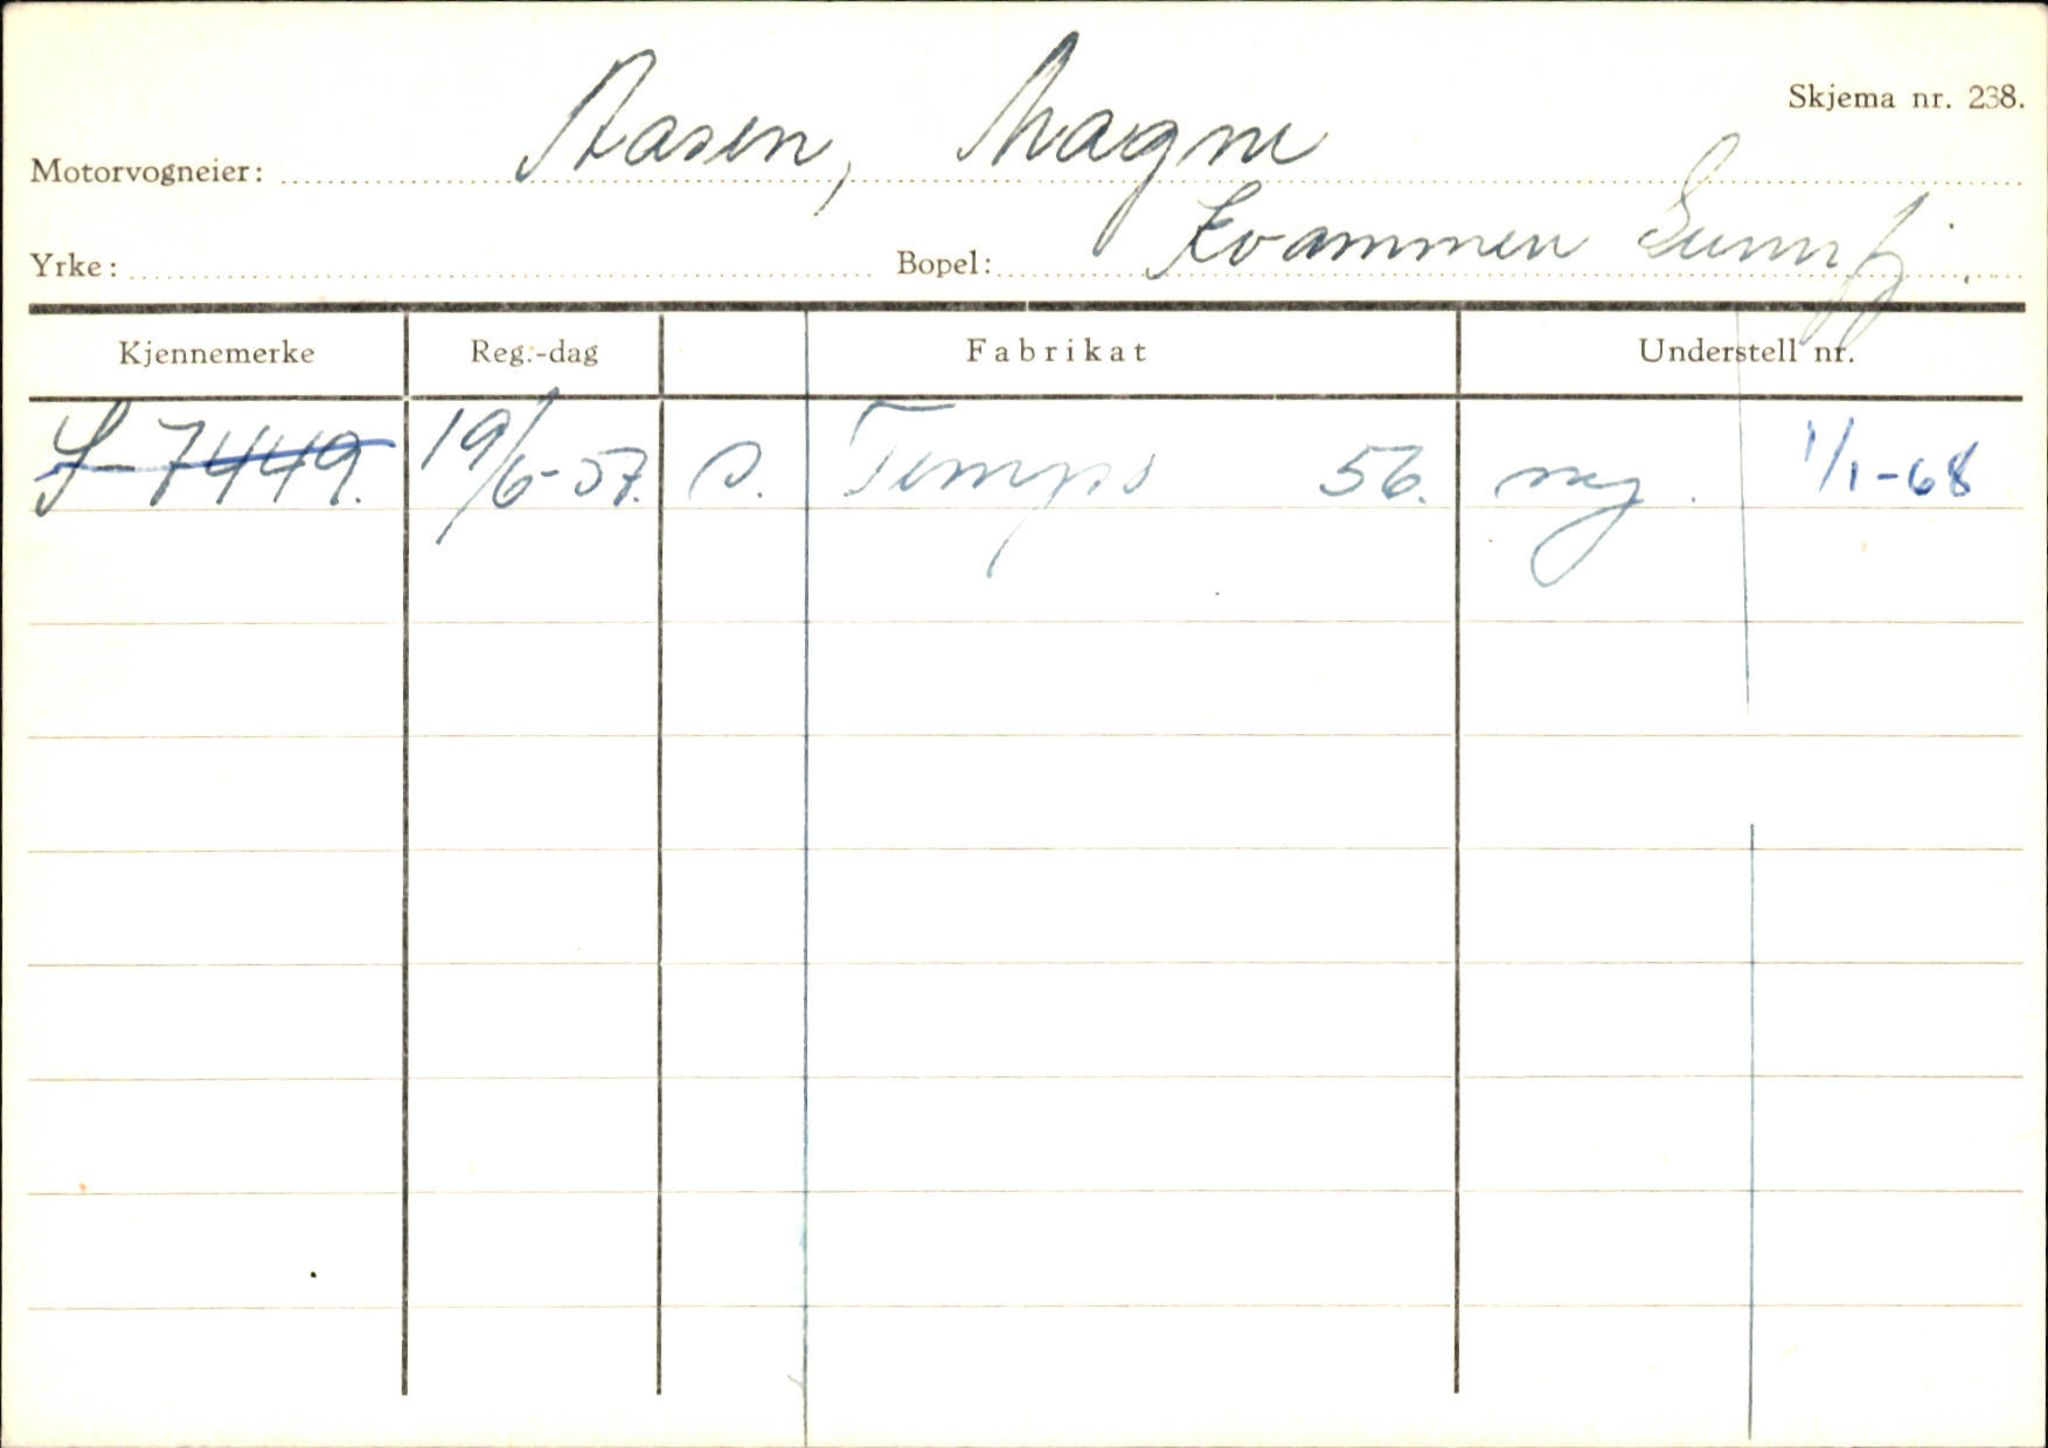 Skjema nr. 238.
Motorvogneier: Aasen, Magne
Yrke: Bopel: Kvammen Sunnfj.
Kjennemerke Reg.-dag Fabrikat Understell nr.
S-7449. 19/6-57. s. Tempo 56. 1/1-68